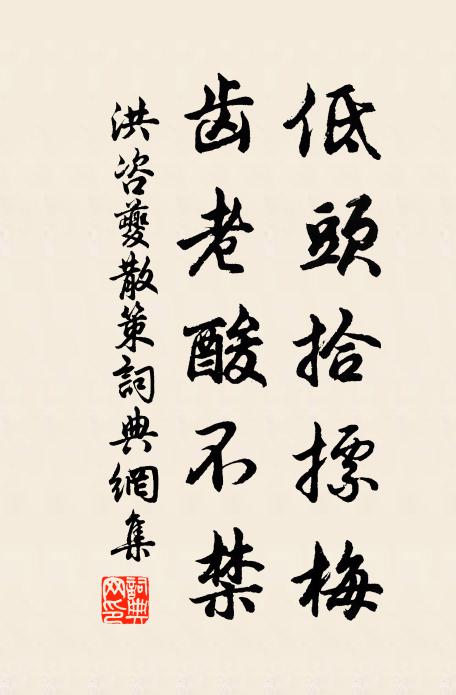 低頭拾摽梅
齿老酸不禁
洪咨夔散策詞典網集
詞典网印